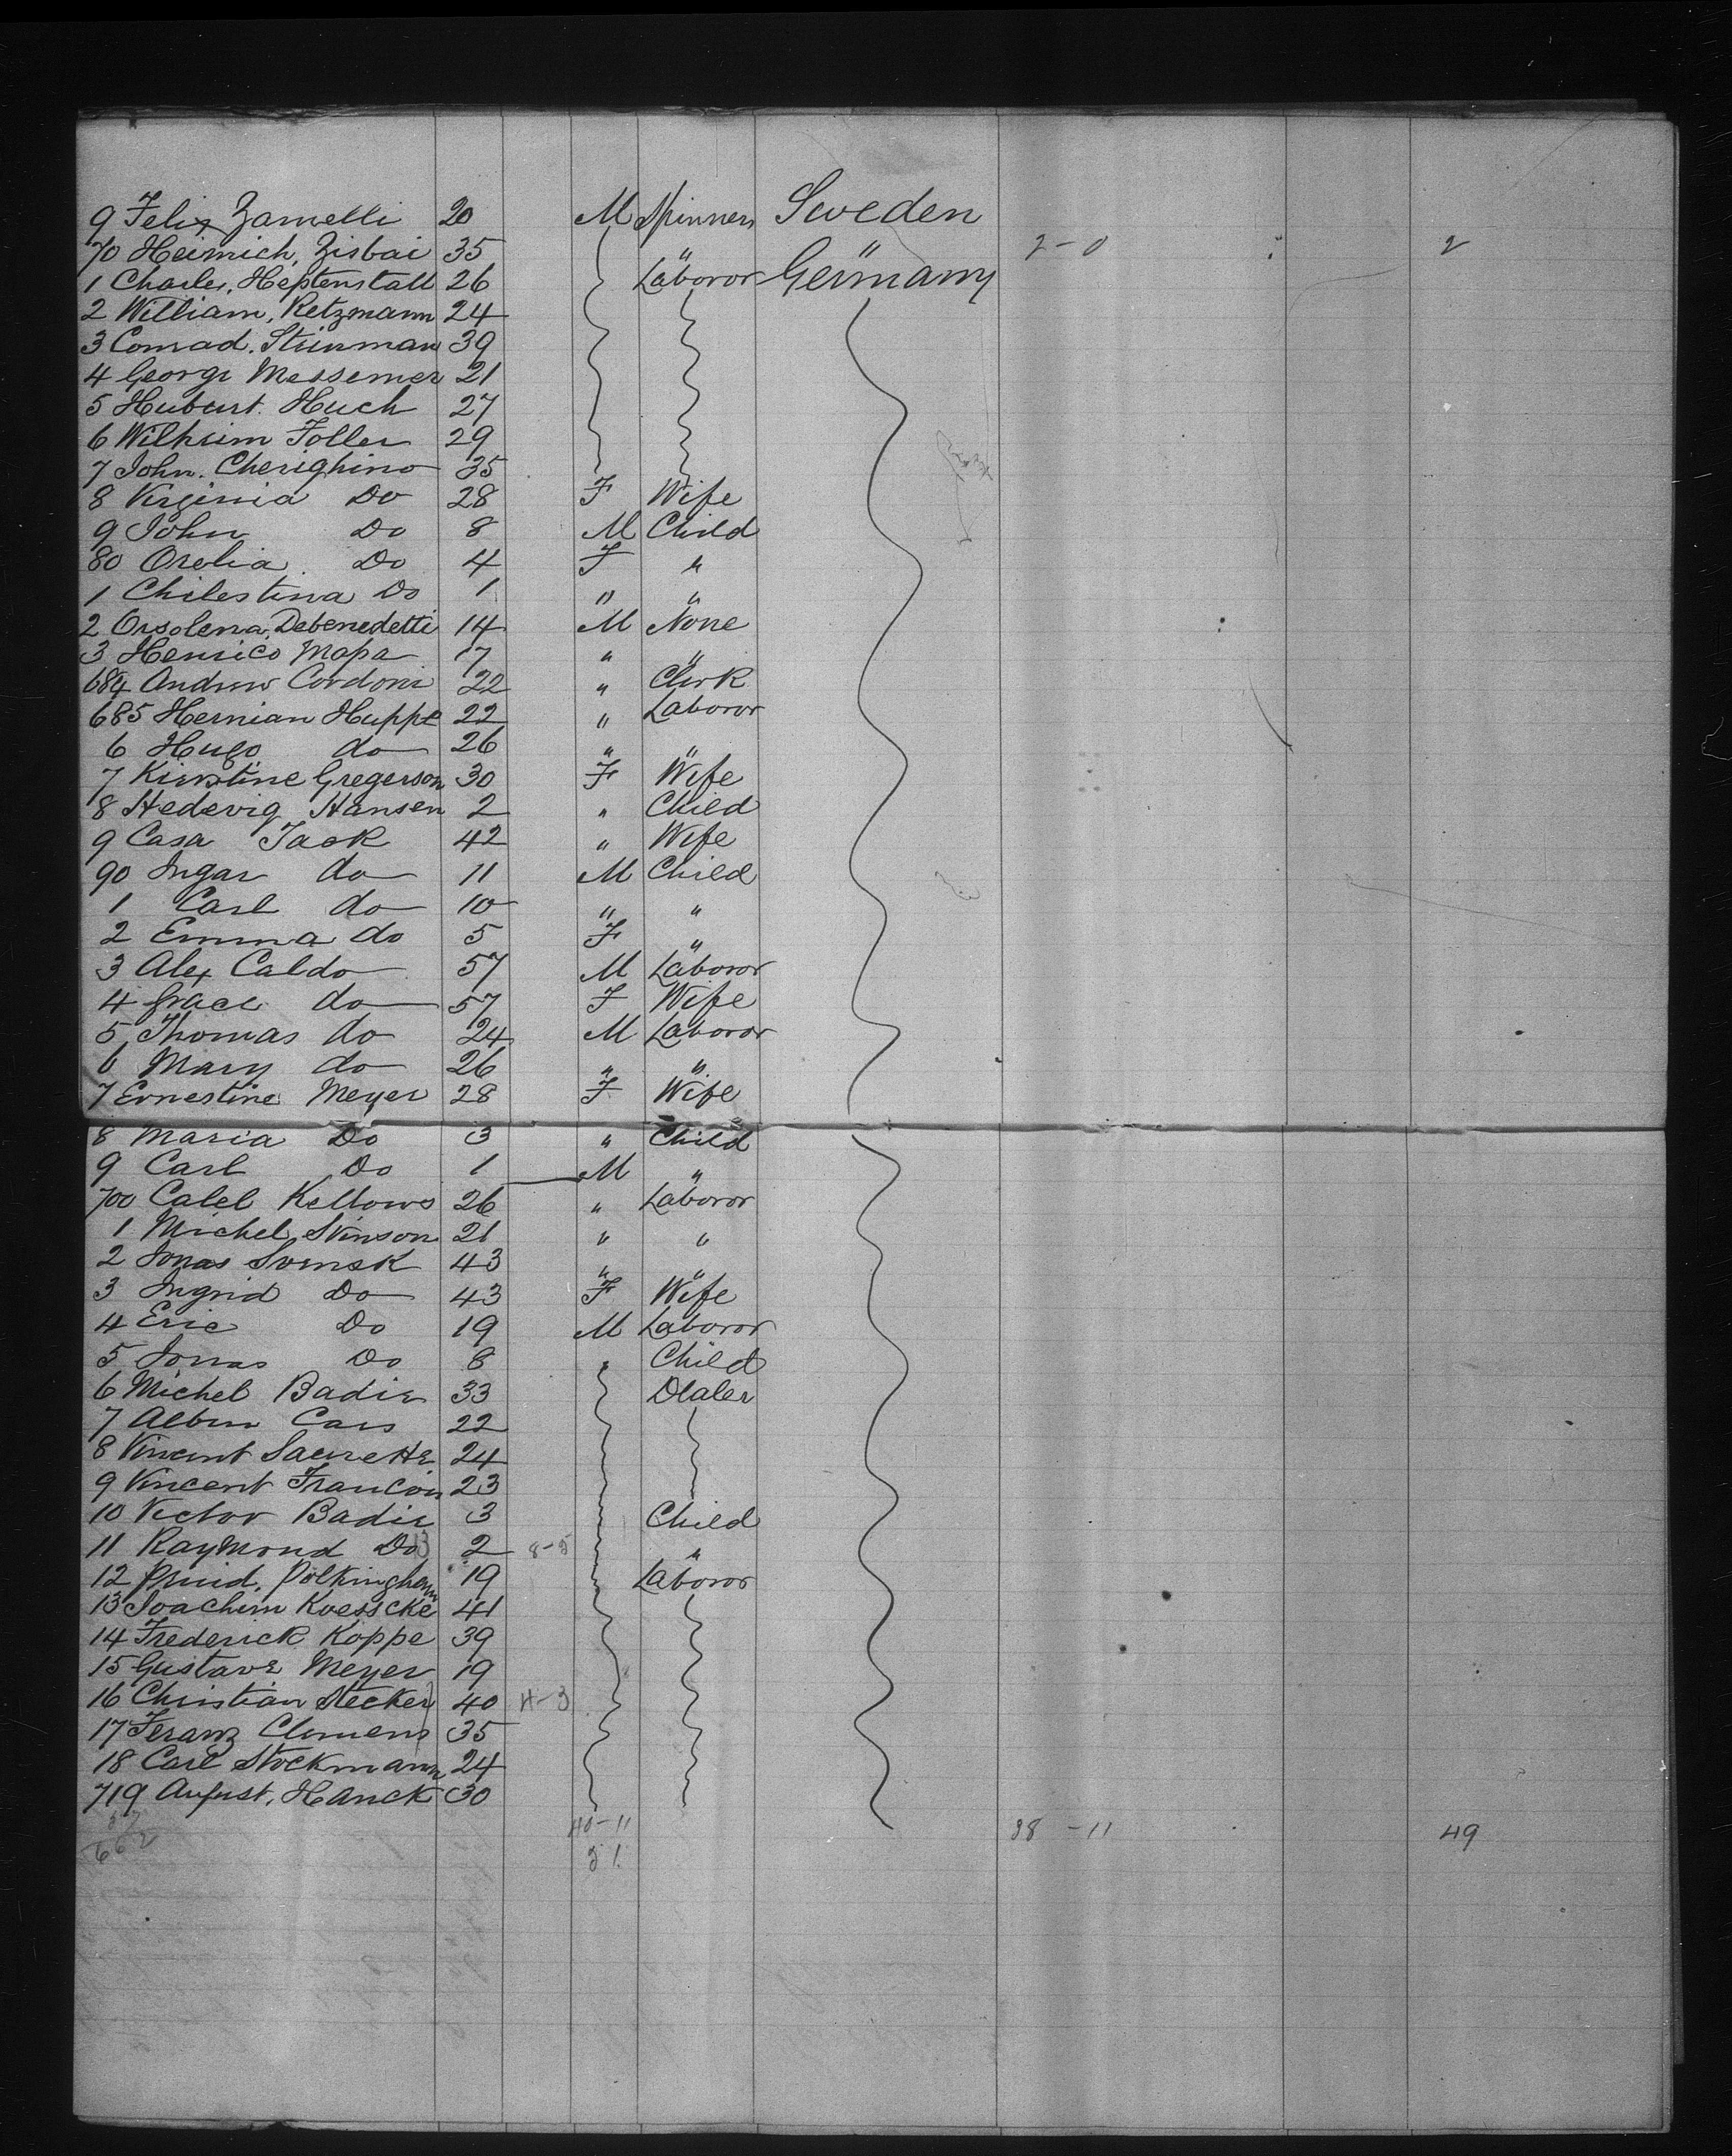 9 Felix Zamelli 20 M Spinners Sweden
70 Heinrich, Zisbai 35 " " 2-0 2
1 Charles, Heptenstall 26 Laboror Germany
2 William, Retzmann 24
3 Conrad. Steinman 39
4 George Messemer 21
5 Hubert. Huch 27
6 Wilheim Foller 29
7 John. Cherighino 35
8 Virginia Do 28 F Wife
9 John Do 8 M Child
80 Orolia Do 4 F "
1 Chilestina Do 1 " "
2 Orsolena, Debenedetti 14 M None
3 Henrico Mapa 17 " "
684 Andrew Cordoni 22 " Clerk
685 Hernian Huppe 22 " Laboror
6 Hugo do 26 " "
7 Kirstine Gregerson 30 F Wife
8 Hedevig Hansen 2 " Child
9 Casa Jack 42 " Wife
90 Ingar do 11 M Child
1 Carl do 10 " "
2 Emma do 5 F "
3 Alex Caldo 57 M Laboror
4 Grace do 57 F Wife
5 Thomas do 24 M Laboror
6 Mary do 26 " "
7 Ernestine Meyer 28 F Wife
8 Maria Do 3 " Child
9 Carl Do 1 M "
700 Calel Kellows 26 " Laboror
1 Michel Stinson 21 " "
2 Jonas Svensk 43 " "
3 Ingrid Do 43 F Wife
4 Eric Do 19 M Laboror
5 Jonas Do 8 " Child
6 Michel Badie 33 Dealer
7 Albin Cars 22
8 Vincent 24
9 Vincent Francois 23
10 Victor Badie 3 Child
11 Raymond Do 2 8-5 "
12 Polkingham 19 Laboror
13 Joachim Koesscke 41
14 Frederick Koppe 39
15 Gustave Meyer 19
16 Christian Stecker 40 4-3
17 Feranz Clemens 35
18 Carl Stockmann 24
719 August, Hanck 30
40-11 38-11 49
51